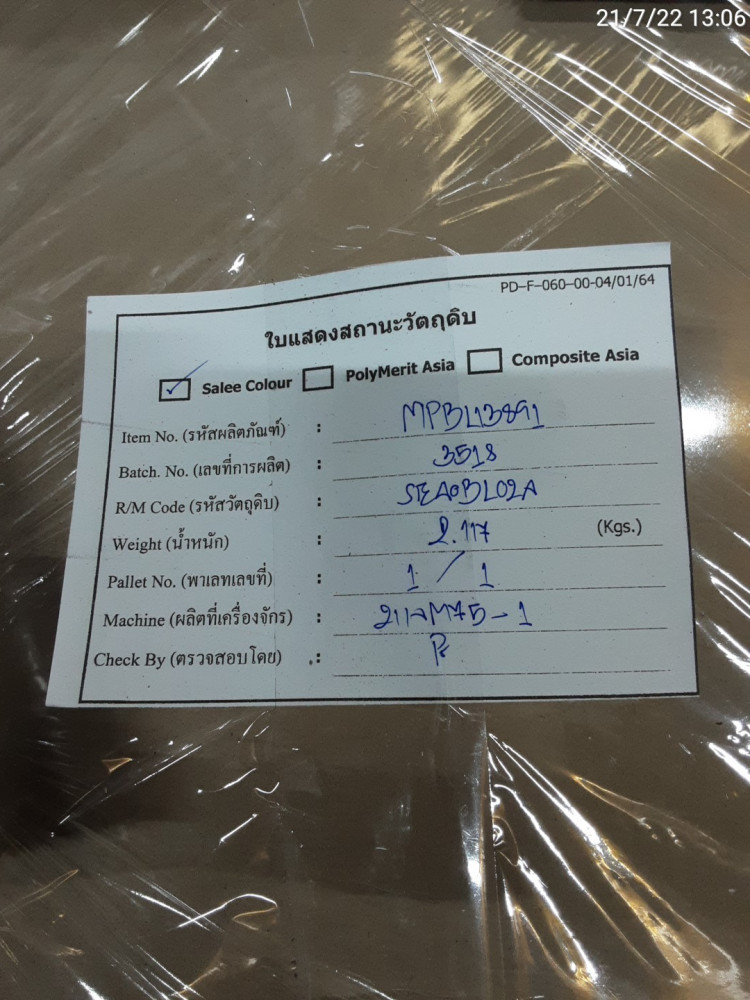 21/7/22 13:06
PD-F-060-00-04/01/64
ใบแสดงสถานะวัตถุดิบ
Salee Colour PolyMerit Asia Composite Asia
Item No. (รหัสผลิตภัณฑ์) : MPBL13891
Batch. No. (เลขที่การผลิต) : 3518
R/M Code (รหัสวัตถุดิบ) :
Weight (น้ำหนัก) : 2.117 (Kgs.)
Pallet No. (พาเลทเลขที่) : 1 / 1
Machine (ผลิตที่เครื่องจักร) :
Check By (ตรวจสอบโดย) :